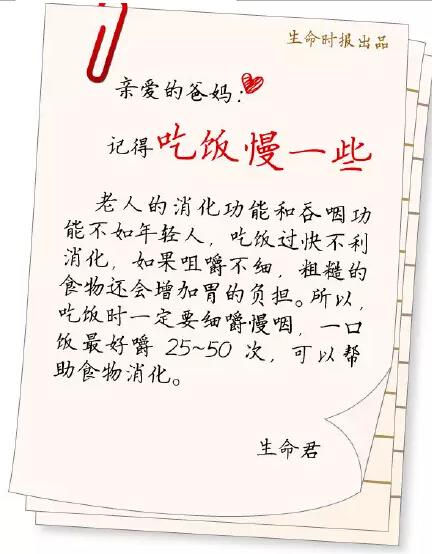 生命时报出品
亲爱的爸妈：
记得吃饭慢一些
老人的消化功能和吞咽功
能不如年轻人，吃饭过快不利
消化，如果咀嚼不细，粗糙的
食物还会增加胃的负担。所以，
吃饭时一定要细嚼慢咽，一口
饭最好嚼 25~50 次，可以帮
助食物消化。
生命君